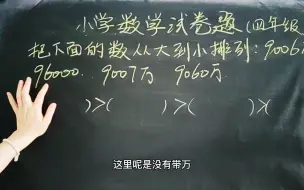 小学数学试卷题(四年级
把下面的数从大到小排列:9006
96000.. 9007万 9060万.
)>( )>( )>(
这里呢是没有带万